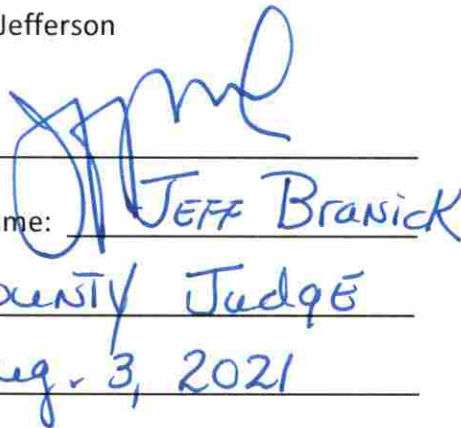 Jefferson
ame: JEFF BRANICK
OUNTY JUdgE
ug. 3, 2021